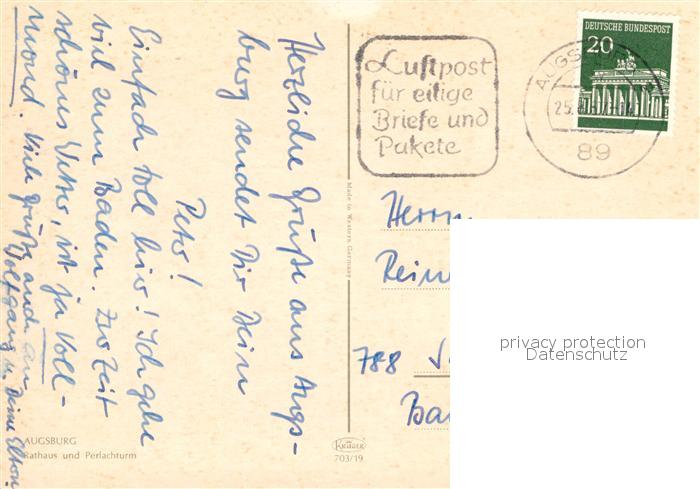 Herzliche Grüße aus Augs-
burg sendet Dir Dein
Peter!
Einfach toll hier! Ich gehe
viel zum Baden. Zur Zeit
schönes Wetter, ist ja Voll-
mond. Viele Grüße auch an
Wolfgang u. Deine Eltern.
AUGSBURG
Rathaus und Perlachturm
Made in Western Germany
Krüger
703/19
Luftpost
für eilige
Briefe und
Pakete
DEUTSCHE BUNDESPOST
20
AUGSBURG
25.
89
Herrn
Rein
788
Ba
privacy protection
Datenschutz